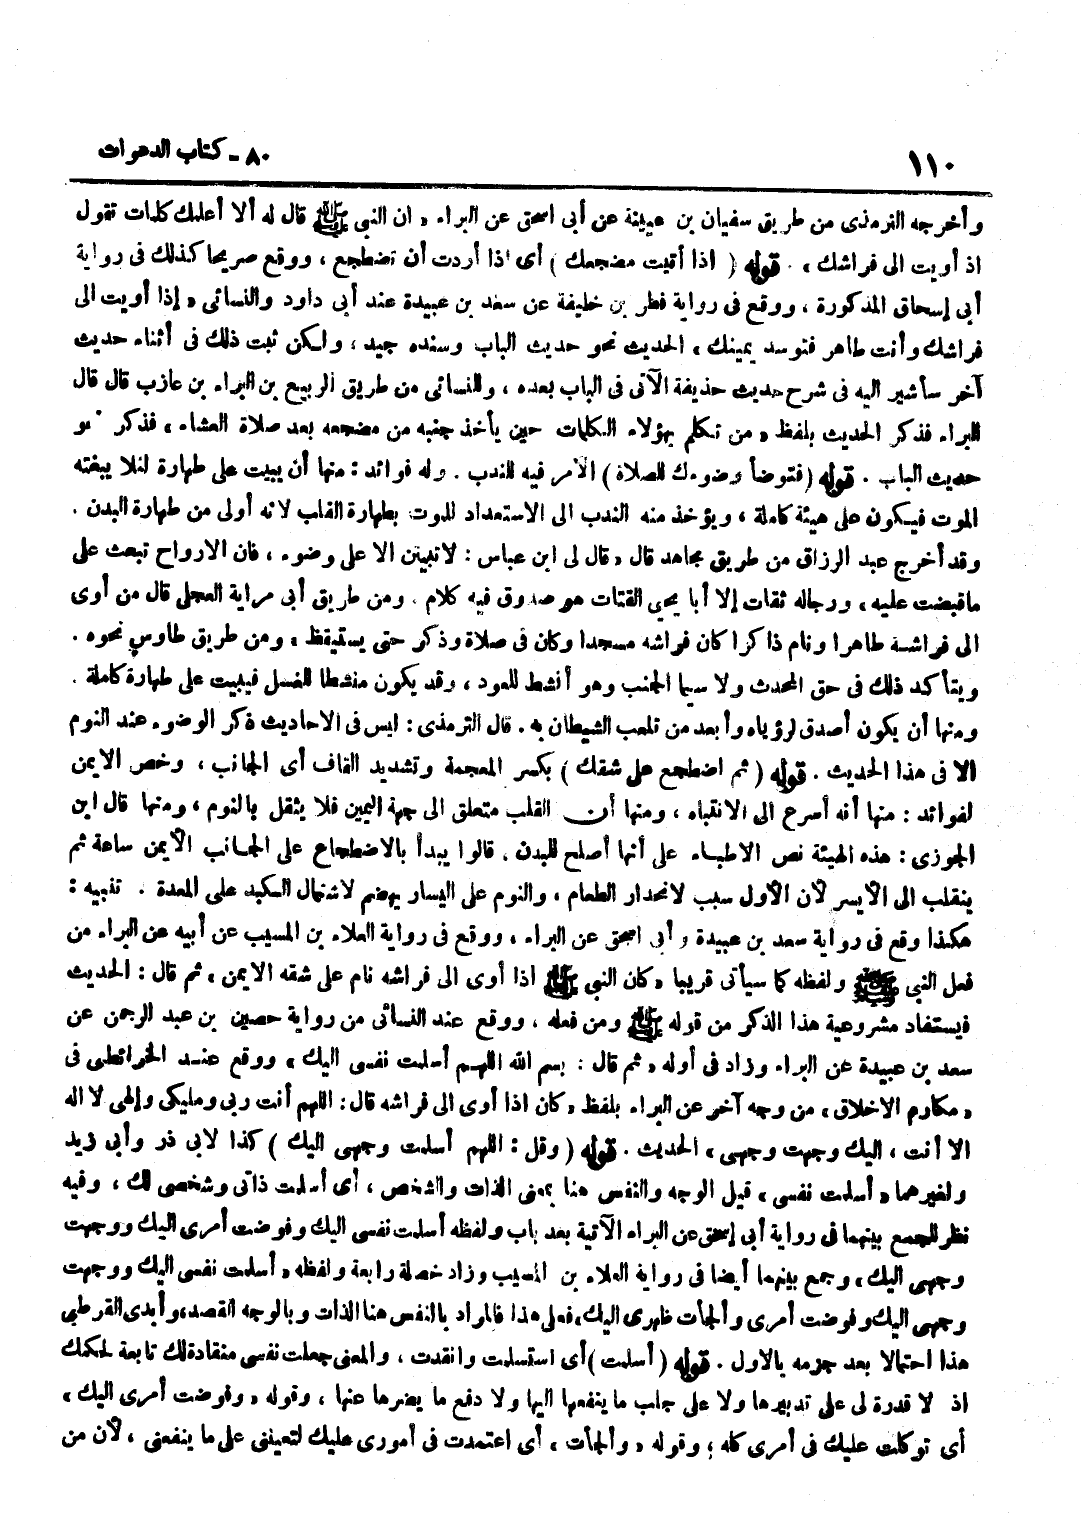 ١١٠
٨٠ - كتاب الدعوات
وأخرجه الترمذى من طريق سفيان بن عيينة عن أبى اسحق عن البراء « ان النبى ﷺ قال له ألا أعلمك كلمات تقول
اذ أويت الى فراشك » . قوله ( اذا أتيت مضجعك ) أى اذا أردت أن تضطجع ، ووقع صريحا كذلك فى رواية
أبى إسحاق المذكورة ، ووقع فى رواية فطر بن خليفة عن سعد بن عبيدة عند أبى داود والنسائى « إذا أويت الى
فراشك وأنت طاهر فتوسد يمينك » الحديث نحو حديث الباب وسنده جيد ، ولكن ثبت ذلك فى أثناء حديث
آخر سأشير اليه فى شرح حديث حذيفة الآتى فى الباب بعده ، وللنسائى من طريق الربيع بن البراء بن عازب قال قال
البراء فذكر الحديث بلفظ « من تكلم بهؤلاء الكلمات حين يأخذ جنبه من مضجعه بعد صلاة العشاء » فذكر نحو
حديث الباب . قوله ( فتوضأ وضوءك للصلاة ) الأمر فيه للندب . وله فوائد : منها أن يبيت على طهارة لئلا يبغته
الموت فيكون على هيئة كاملة ، ويؤخذ منه الندب الى الاستعداد للموت بطهارة القلب لانه أولى من طهارة البدن .
وقد أخرج عبد الرزاق من طريق مجاهد قال « قال لى ابن عباس : لا تبيتن الا على وضوء ، فان الارواح تبعث على
ماقبضت عليه ، ورجاله ثقات إلا أبا يحيى القتات هو صدوق فيه كلام . ومن طريق أبى مراية العجلى قال من أوى
الى فراشه طاهرا ونام ذاكرا كان فراشه مسجدا وكان فى صلاة وذكر حتى يستيقظ » ومن طريق طاوس نحوه .
ويتأكد ذلك فى حق المحدث ولا سيما الجنب وهو أنشط للعود ، وقد يكون منشطا للغسل فيبيت على طهارة كاملة .
ومنها أن يكون أصدق لرؤياه وأبعد من تلعب الشيطان به . قال الترمذى : ليس فى الاحاديث ذكر الوضوء عند النوم
الا فى هذا الحديث . قوله ( ثم اضطجع على شقك ) بكسر المعجمة وتشديد القاف أى الجانب ، وخص الايمن
لفوائد : منها أنه أسرع الى الانتباه ، ومنها أن القلب متعلق الى جهة اليمين فلا يثقل بالنوم ، ومنها قال ابن
الجوزى : هذه الهيئة نص الاطباء على أنها أصلح للبدن . قالوا يبدأ بالاضطجاع على الجانب الأيمن ساعة ثم
ينقلب الى الأيسر لأن الأول سبب لانحدار الطعام ، والنوم على اليسار يهضم لاشتمال الكبد على المعدة . تنبيه :
هكذا وقع فى رواية سعد بن عبيدة وأبى اسحق عن البراء ، ووقع فى رواية العلاء بن المسيب عن أبيه عن البراء من
فعل النبى ﷺ ولفظه كما سيأتى قريبا « كان النبى ﷺ اذا أوى الى فراشه نام على شقه الايمن » ثم قال : الحديث
فيستفاد مشروعية هذا الذكر من قوله ﷺ ومن فعله ، ووقع عند النسائى من رواية حصين بن عبد الرحمن عن
سعد بن عبيدة عن البراء وزاد فى أوله « ثم قال : بسم الله اللهم أسلمت نفسى اليك » ووقع عند الخرائطى فى
« مكارم الاخلاق » من وجه آخر عن البراء بلفظ « كان اذا أوى الى فراشه قال : اللهم أنت ربى ومليكى وإلهى لا اله
الا أنت ، اليك وجهت وجهى » الحديث . قوله ( وقل : اللهم أسلمت وجهى اليك ) كذا لابى ذر وأبى زيد
ولغيرهما « أسلمت نفسى » قيل الوجه والنفس هنا بمعنى الذات والشخص ، أى أسلمت ذاتى وشخصى لك ، وفيه
نظر للجمع بينهما فى رواية أبى إسحق عن البراء الآتية بعد باب ولفظه أسلمت نفسى اليك وفوضت أمرى اليك ووجهت
وجهى اليك » وجمع بينهما أيضا فى رواية العلاء بن المسيب وزاد خصلة رابعة ولفظه « أسلمت نفسى اليك ووجهت
وجهى اليك وفوضت أمرى وألجأت ظهرى اليك » فعلى هذا فالمراد بالنفس هنا الذات وبالوجه القصد ، وأبدى القرطبى
هذا احتمالا بعد جزمه بالاول . قوله ( أسلمت ) أى استسلمت وانقدت ، والمعنى جعلت نفسى منقادة لك تابعة لحكمك
اذ لا قدرة لى على تدبيرها ولا على جلب ما ينفعها اليها ولا دفع ما يضرها عنها ، وقوله « وفوضت أمرى اليك »
أى توكلت عليك فى أمرى كله ؛ وقوله « وألجأت » أى اعتمدت فى أمورى عليك لتعيننى على ما ينفعنى ، لأن من